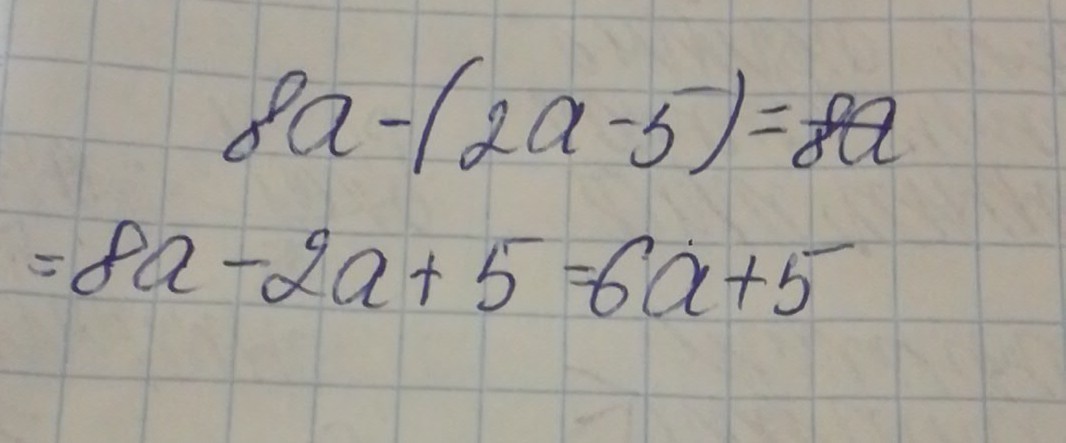 8a-(2a-5)=8a
=8a-2a+5=6a+5